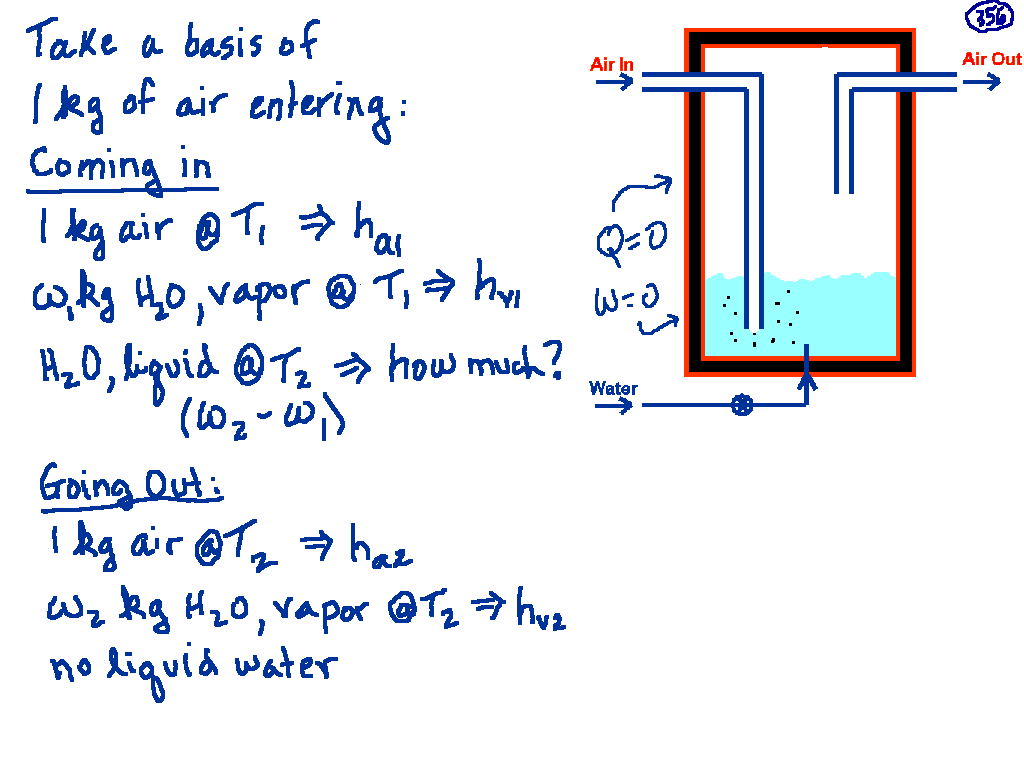 356
Take a basis of
1 kg of air entering:
Coming in
1 kg air @ T₁ ⇒ hₐ₁
ω₁ kg H₂O, vapor @ T₁ ⇒ hᵥ₁
H₂O, liquid @ T₂ ⇒ how much?
(ω₂ - ω₁)
Going Out:
1 kg air @ T₂ ⇒ hₐ₂
ω₂ kg H₂O, vapor @ T₂ ⇒ hᵥ₂
no liquid water
Air In
Air Out
Q=0
W=0
Water